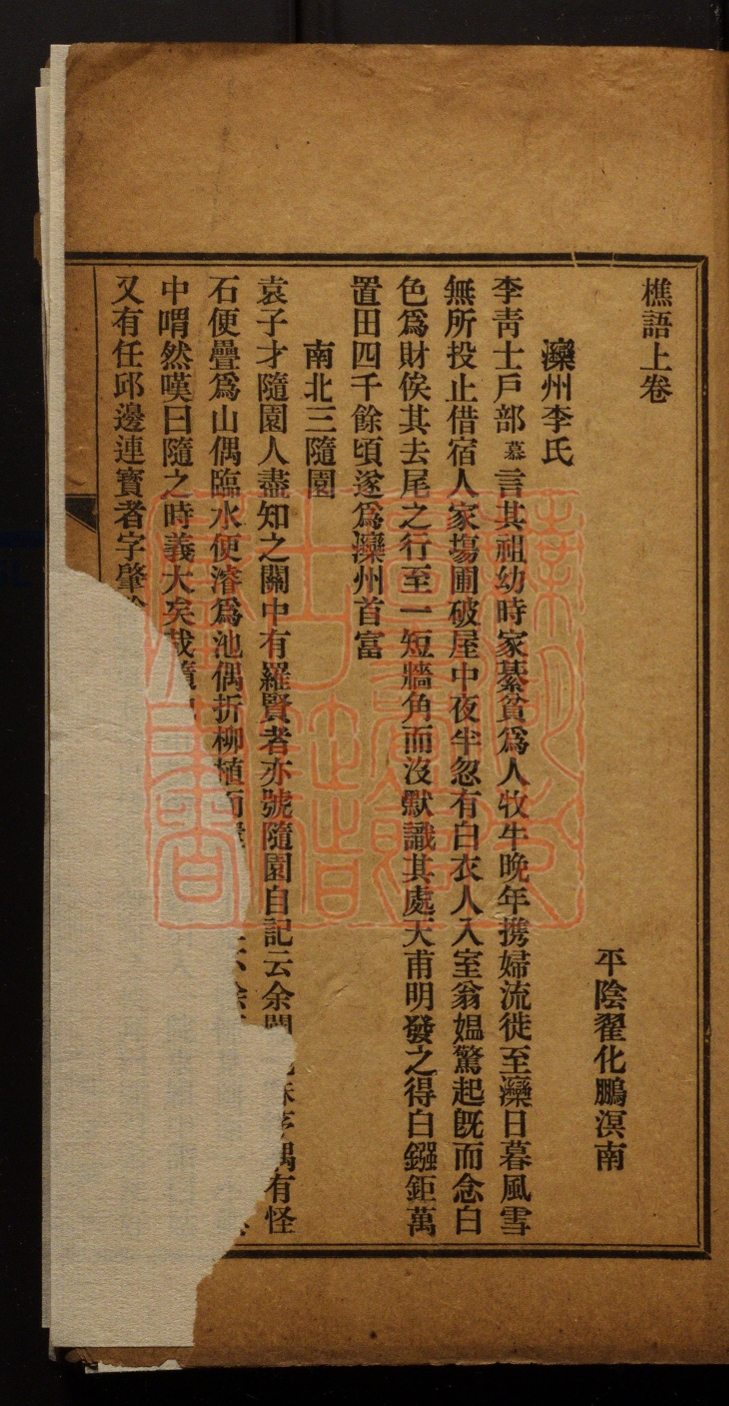 樵語上卷
平陰翟化鵬溟南
灤州李氏
李靑士戶部慕言其祖幼時家綦貧爲人牧牛晩年携婦流徙至灤日暮風雪
無所投止借宿人家塲圃破屋中夜半忽有白衣人入室翁媼驚起旣而念白
色爲財俟其去尾之行至一短牆角而沒默識其處天甫明發之得白鏹鉅萬
置田四千餘頃遂爲灤州首富
南北三隨園
袁子才隨園人盡知之關中有羅賢者亦號隨園自記云余偶有怪
石便疊爲山偶臨水便濬爲池偶折柳植而
中喟然嘆曰隨之時義大矣哉隨
又有任邱邊連寶者字肇